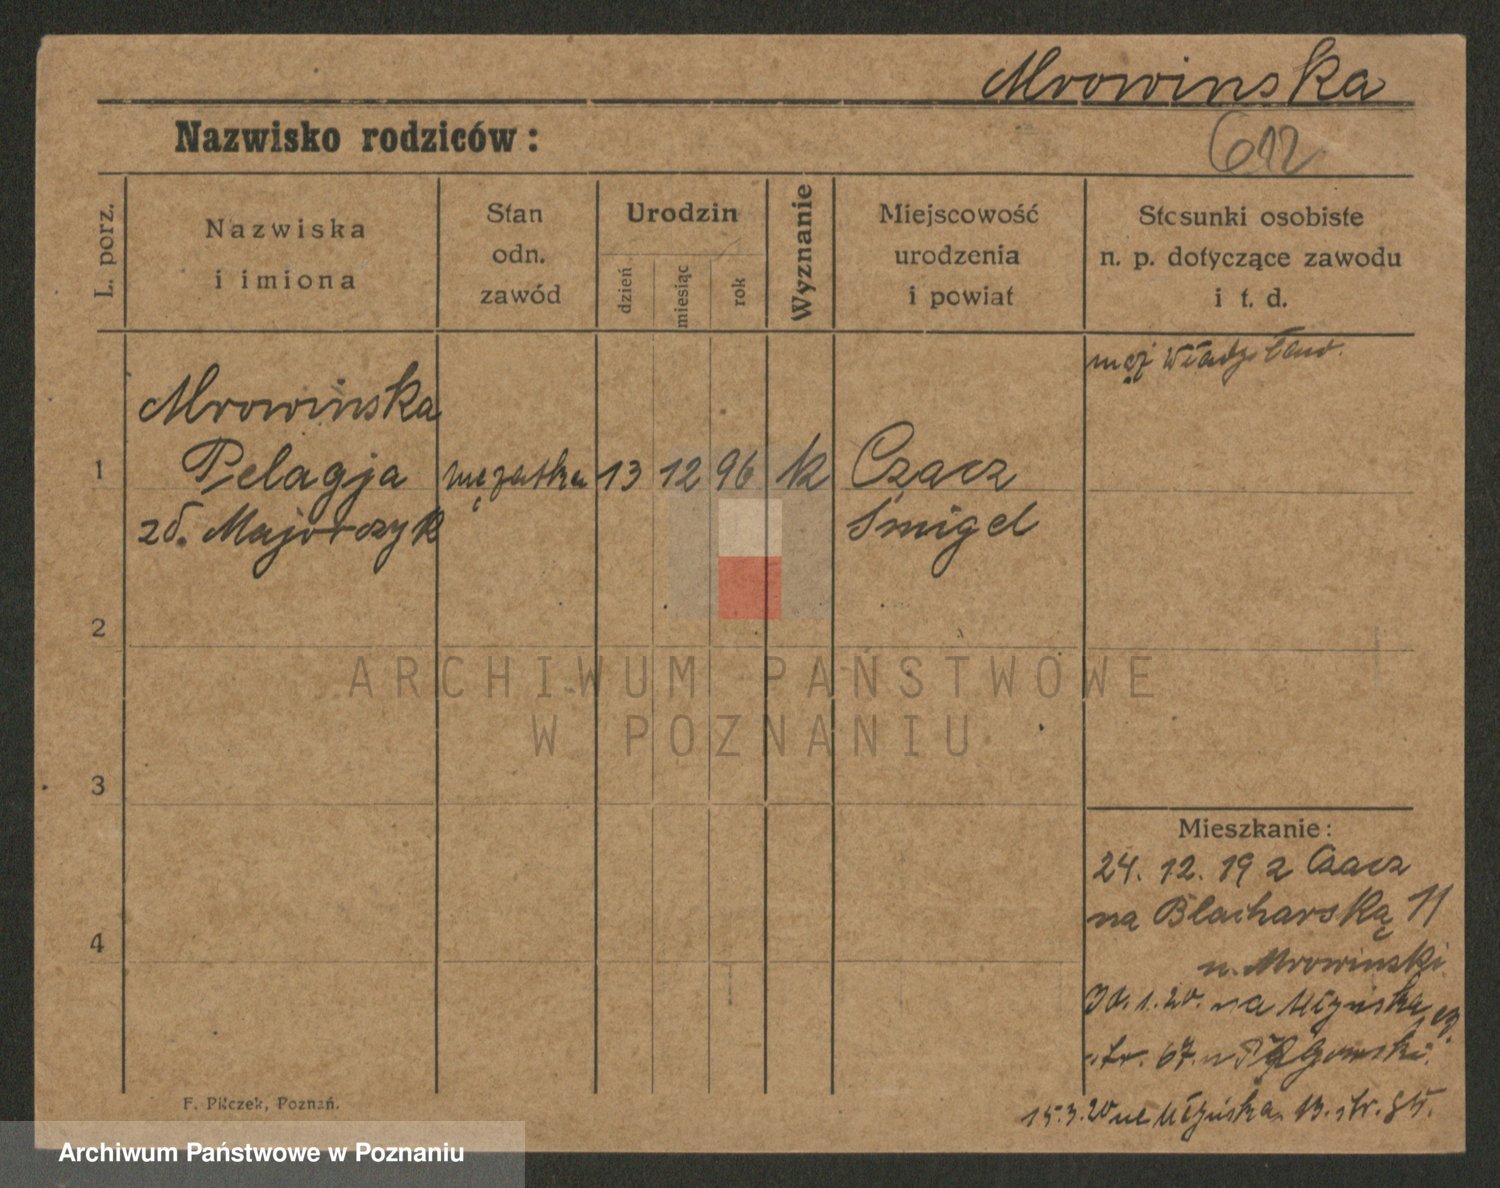 Mrowinska
Nazwisko rodziców:
612
L. porz.
Nazwiska
i imiona
Stan
odn.
zawód
Urodzin
dzień
miesiąc
rok
Wyznanie
Miejscowość
urodzenia
i powiat
Stosunki osobiste
n. p. dotyczące zawodu
i t. d.
mąż Władysław.
Mrowińska
1 Pelagja mężatka 13 12 96 k Czacz
zd. Majorczyk Śmigel
2
3
4
ARCHIWUM PAŃSTWOWE
W POZNANIU
Mieszkanie:
24. 12. 19 z Czacz
na Blacharską 11
u. Mrowiński
1. 20. na Młyńska
str. 67. u
15.3.20 na Młyńska 13. str.
F. Pilczek, Poznań.
Archiwum Państwowe w Poznaniu